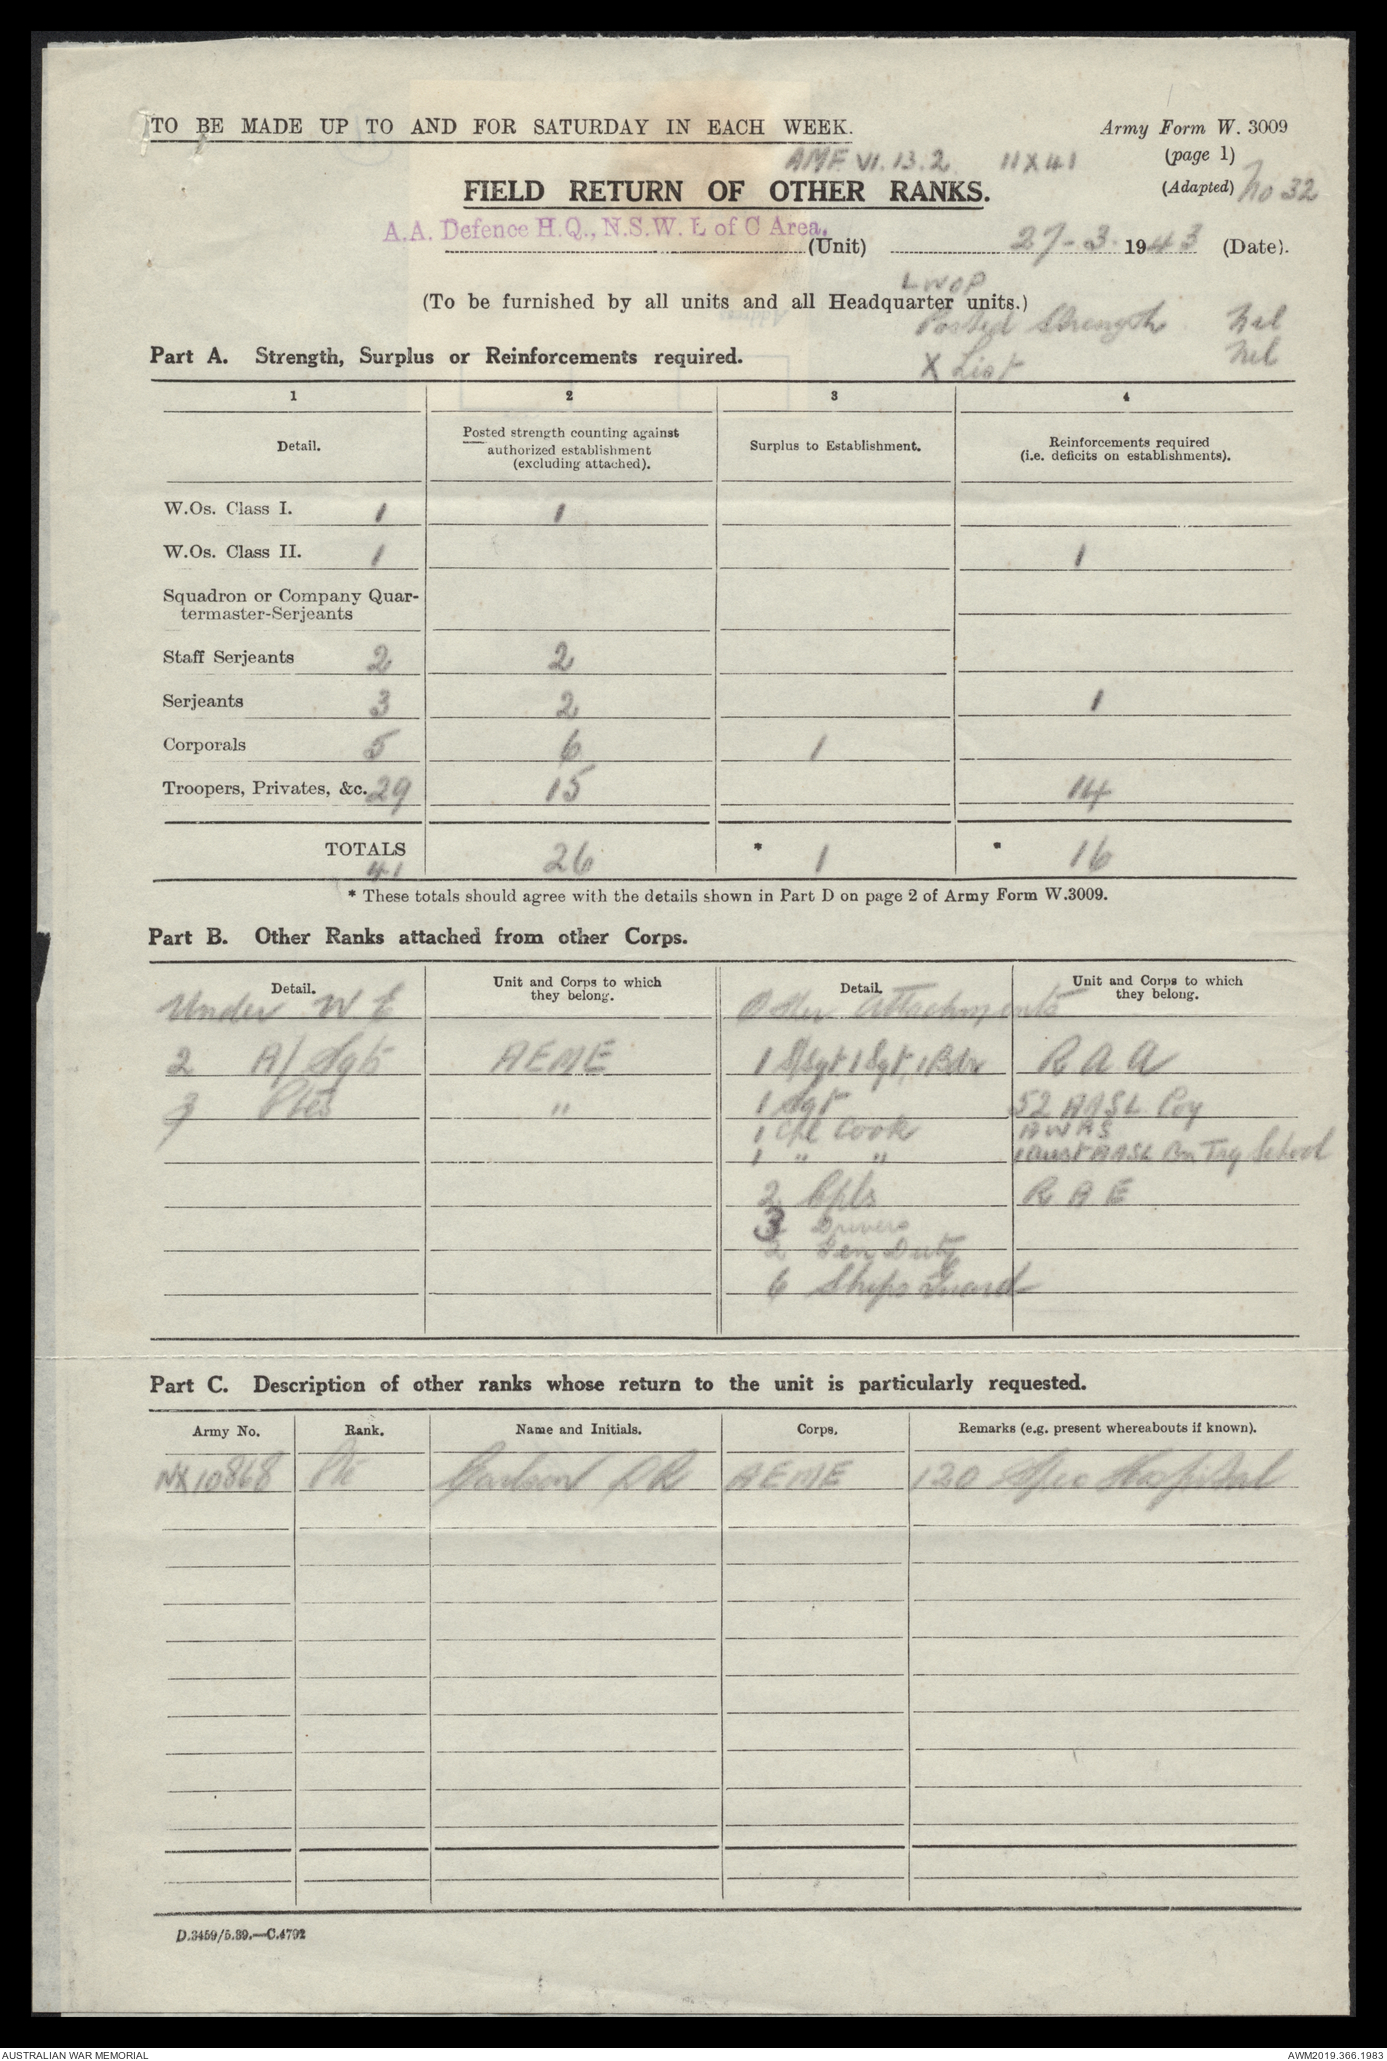 TO BE MADE UP TO AND FOR SATURDAY IN EACH WEEK.
Army Form W. 3009
(page 1)
(Adapted) No 32
AMF VI. 13. 2. 11X41
FIELD RETURN OF OTHER RANKS.
A.A. Defence H.Q., N.S.W. L of C Area.
(Unit) 27-3- 1943 (Date).
LWOP
(To be furnished by all units and all Headquarter units.)
Posted Strength Nil
X List Nil
Part A. Strength, Surplus or Reinforcements required.
1 2 3 4
Detail. Posted strength counting against authorized establishment (excluding attached). Surplus to Establishment. Reinforcements required (i.e. deficits on establishments).
W.Os. Class I. 1 1
W.Os. Class II. 1 1
Squadron or Company Quar-
termaster-Serjeants
Staff Serjeants 2 2
Serjeants 3 2 1
Corporals 5 6 1
Troopers, Privates, &c. 29 15 14
TOTALS 41 26 * 1 * 16
* These totals should agree with the details shown in Part D on page 2 of Army Form W.3009.
Part B. Other Ranks attached from other Corps.
Detail. Unit and Corps to which they belong. Detail. Unit and Corps to which they belong.
Under W E Other Attachments
2 A/Sgts AEME 1 S/Sgt 1 Sgt, 1 Bdr R A A
3 Ptes " 1 Sgt 52 AASL Coy
1 Cpl Cook AWAS
1 " " 1 Aust AASL Bn Trg School
2 Cpls R A E
3 Drivers
2 Gen Duty
6 Ships Guard
Part C. Description of other ranks whose return to the unit is particularly requested.
Army No. Rank. Name and Initials. Corps. Remarks (e.g. present whereabouts if known).
NX10868 Pte D R AEME 120 Spec Hospital
D.3459/5.39.—C.4792
AUSTRALIAN WAR MEMORIAL
AWM2019.366.1983